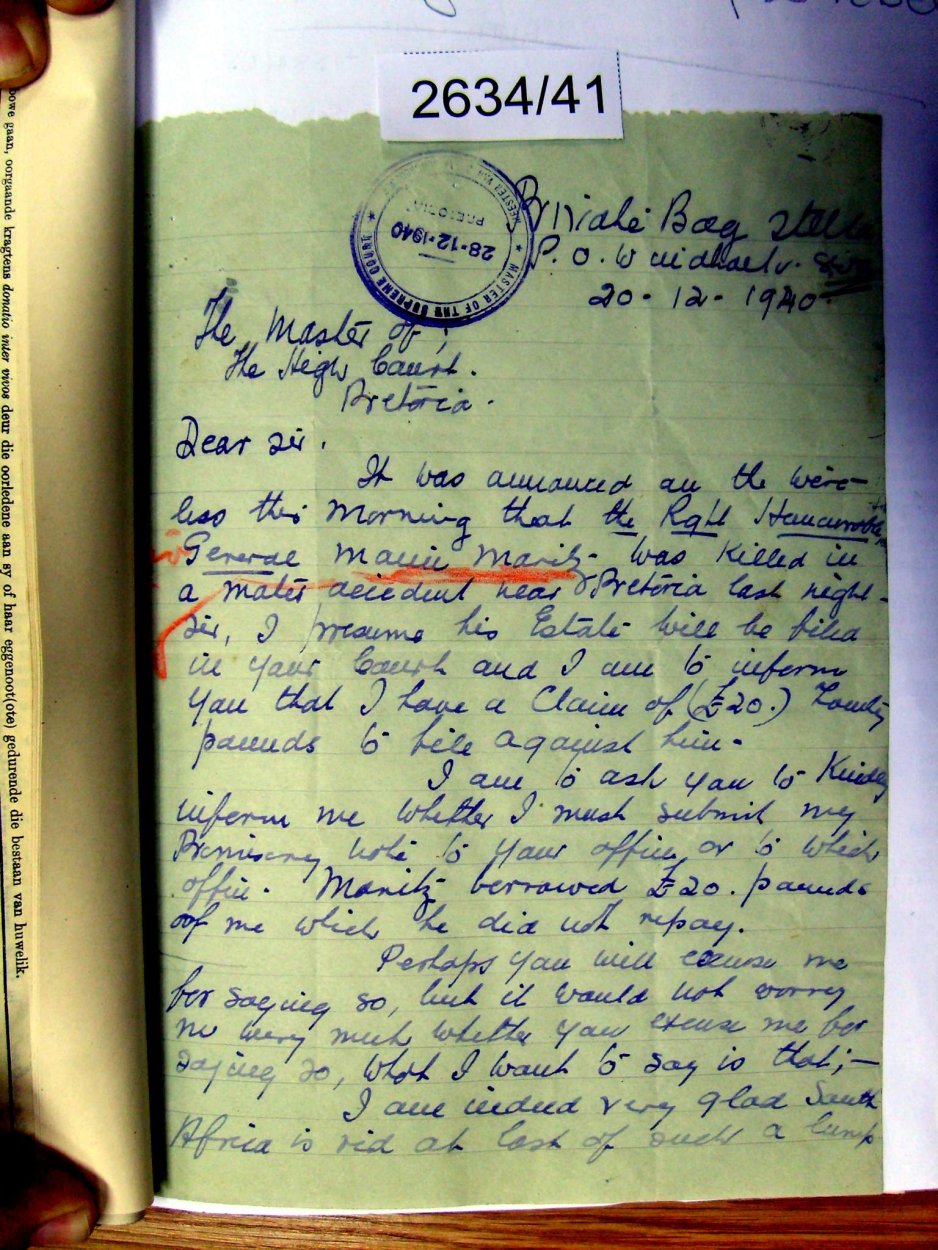 2634/41
MASTER OF THE SUPREME COURT
28-12-1940
PRETORIA
MEESTER VAN
Private Bag
P.O. Windhoek
20-12-1940
The Master of,
The High Court.
Pretoria.
Dear Sir.
It was announced on the wire-
less this morning that the Right Honourable
General Manie Maritz. was killed in
a motor accident near Pretoria last night -
Sir, I presume his Estate will be filed
in your Court and I am to inform
you that I have a claim of (£20.) Twenty
pounds to file against him.
I am to ask you to Kindly
inform me whether I must submit my
Promissory note to your office, or to which
office. Maritz borrowed £20. pounds
of me which he did not repay.
Perhaps you will excuse me
for saying so, but it would not worry
me very much whether you excuse me for
saying so, what I want to say is that;—
I am indeed very glad South
Africa is rid at last of such a lump
bowe gaan, oorgaande kragtens donatio inter vivos deur die oorledene aan sy of haar eggenoot(ote) gedurende die bestaan van huwelik.